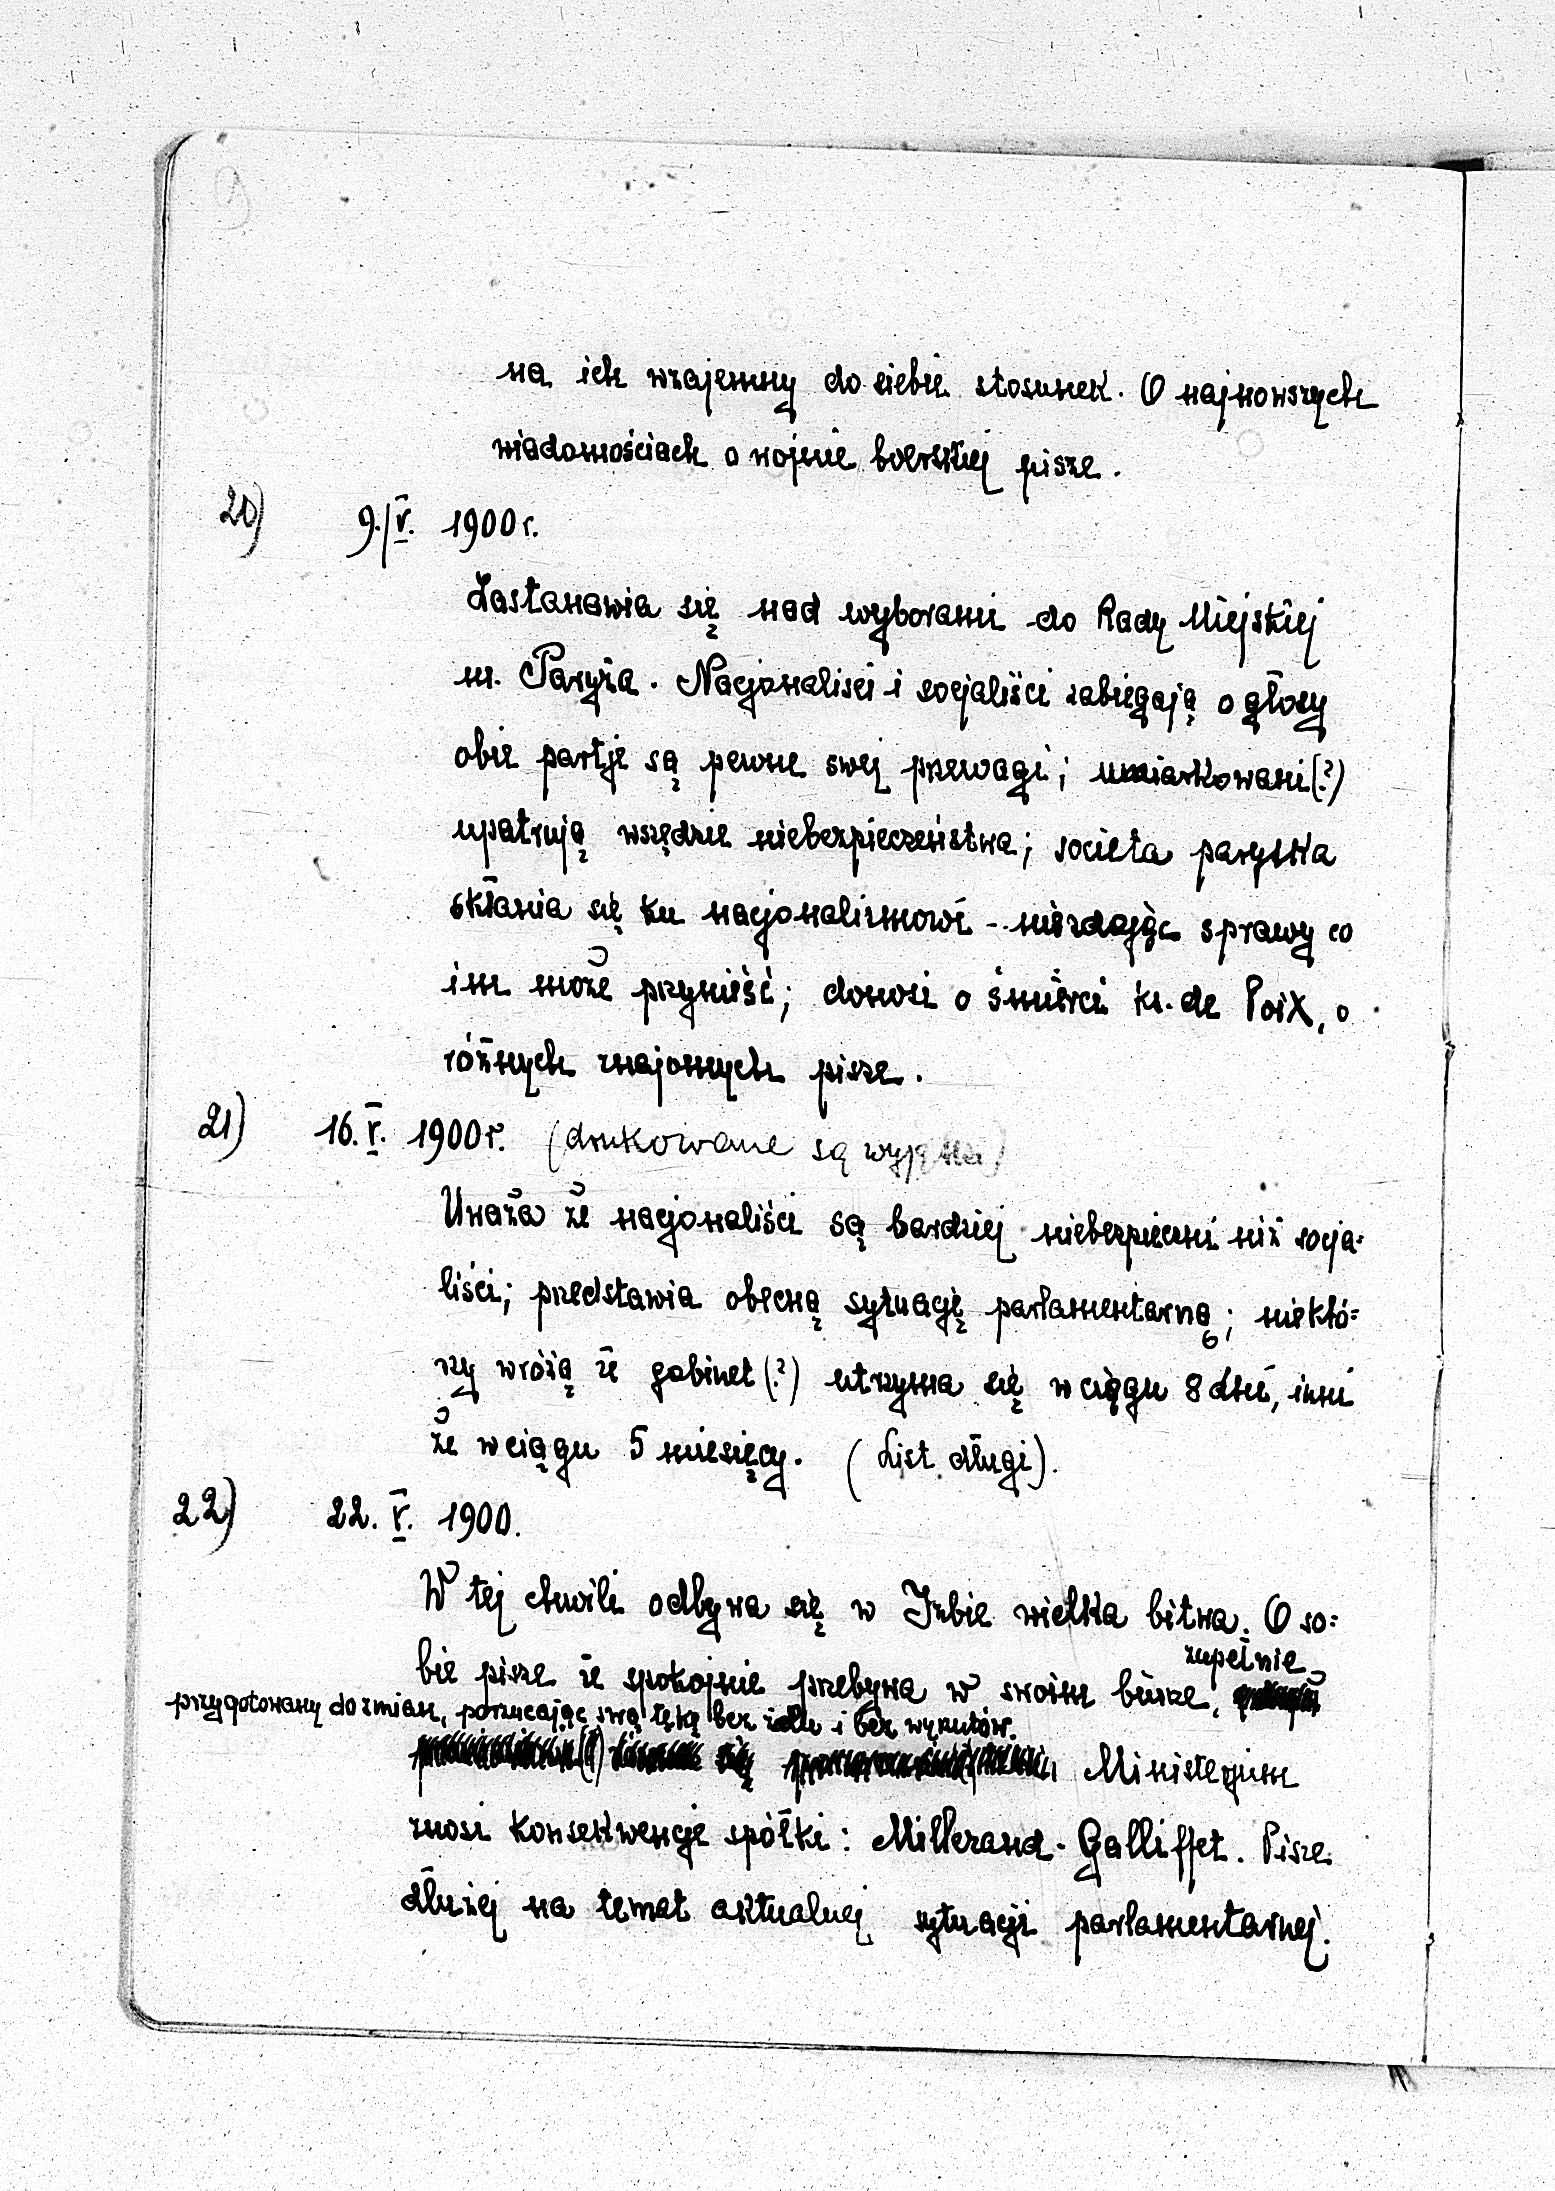 na ich wzajemny do siebie stosunek. O najnowszych
wiadomościach o wojnie boerskiej pisze.
20) 9./V. 1900 r.
Zastanawia się nad wyborami do Rady Miejskiej
m. Paryża. Nacjonaliści i socjaliści zabiegają o głosy
obie partje są pewne swej przewagi; umiarkowani (?)
upatrują wszędzie niebezpieczeństwa; societa paryska
skłania się ku nacjonalizmowi - niezdając sprawy co
im może przynieść; donosi o śmierci ks. de Poix, o
różnych znajomych pisze.
21) 16. V. 1900 r. (drukowane są wyjątki)
Uważa że nacjonaliści są bardziej niebezpieczni niż socja-
liści; przedstawia obecną sytuację parlamentarną; niektó=
rzy wróżą że gabinet (?) utrzyma się w ciągu 8 dni, inni
że w ciągu 5 miesięcy. (List długi).
22) 22. V. 1900.
W tej chwili odbywa się w Izbie wielka bitwa. O so=
bie pisze że spokojnie przebywa w swoim biurze, zupełnie
przygotowany do zmian, porzucając swą tękę bez żalu i bez wyrzutów.
Ministerjum
znosi konsekwencje spółki: Millerand - Galliffet. Pisze
dłużej na temat aktualnej sytuacji parlamentarnej.